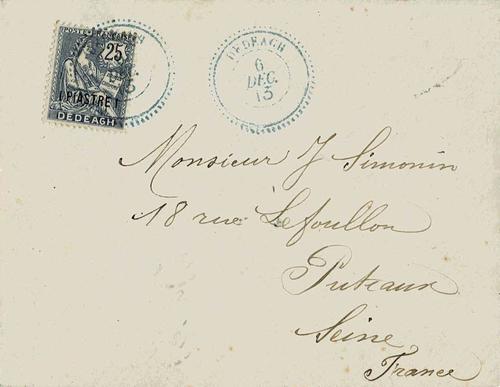 POSTES FRANÇAISES
25
1 PIASTRE 1
DEDEAGH
DEDEAGH
6
DEC.
13
Monsieur J Simonin
18 rue Lefoullon
Puteaux
Seine
France